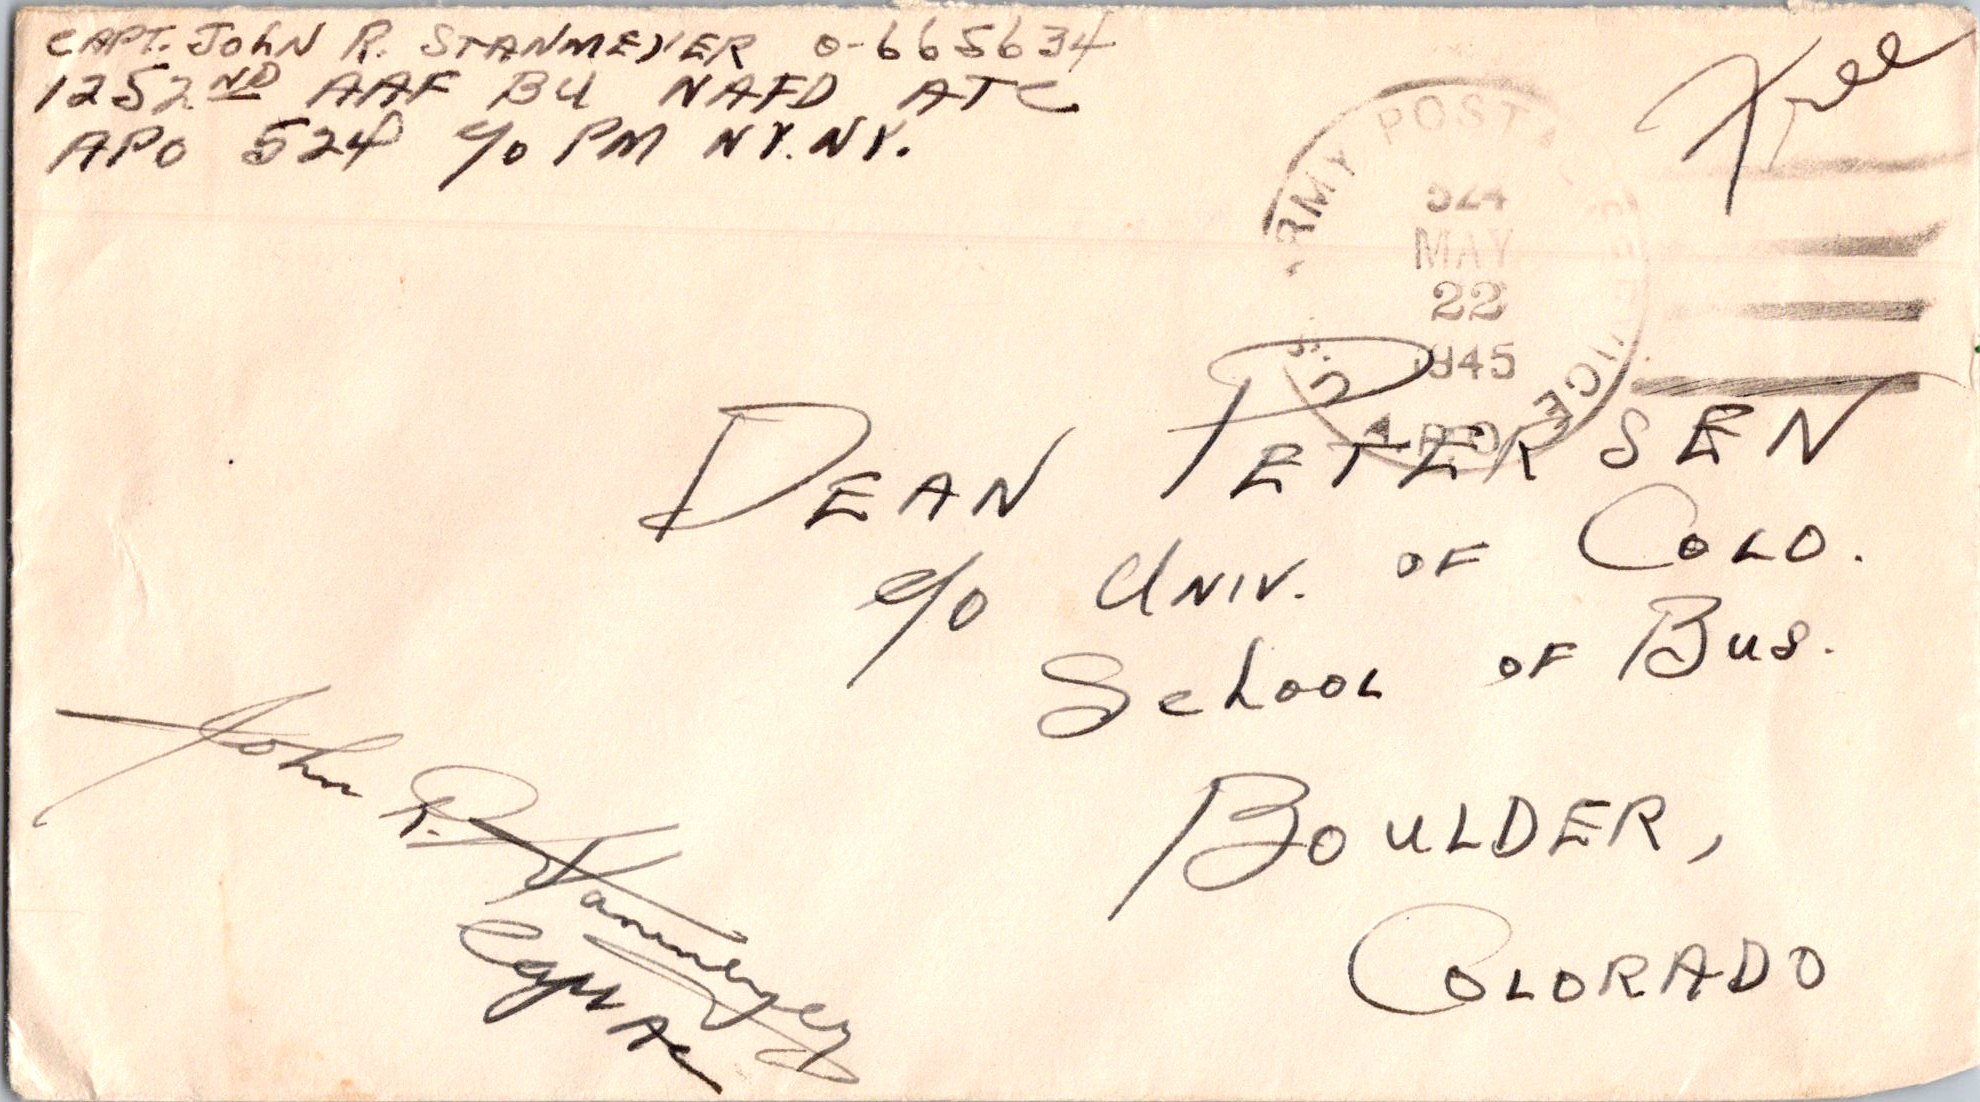 CAPT. JOHN R. STANMEYER O-665634
1252ND AAF BU NAFD ATC
APO 524 c/o PM NY. NY.
Free
U.S. ARMY POSTAL SERVICE
APO
524
MAY
22
1945
DEAN PETERSEN
c/o UNIV. OF COLO.
SCHOOL OF BUS.
BOULDER,
COLORADO
John R. Stanmeyer
AC